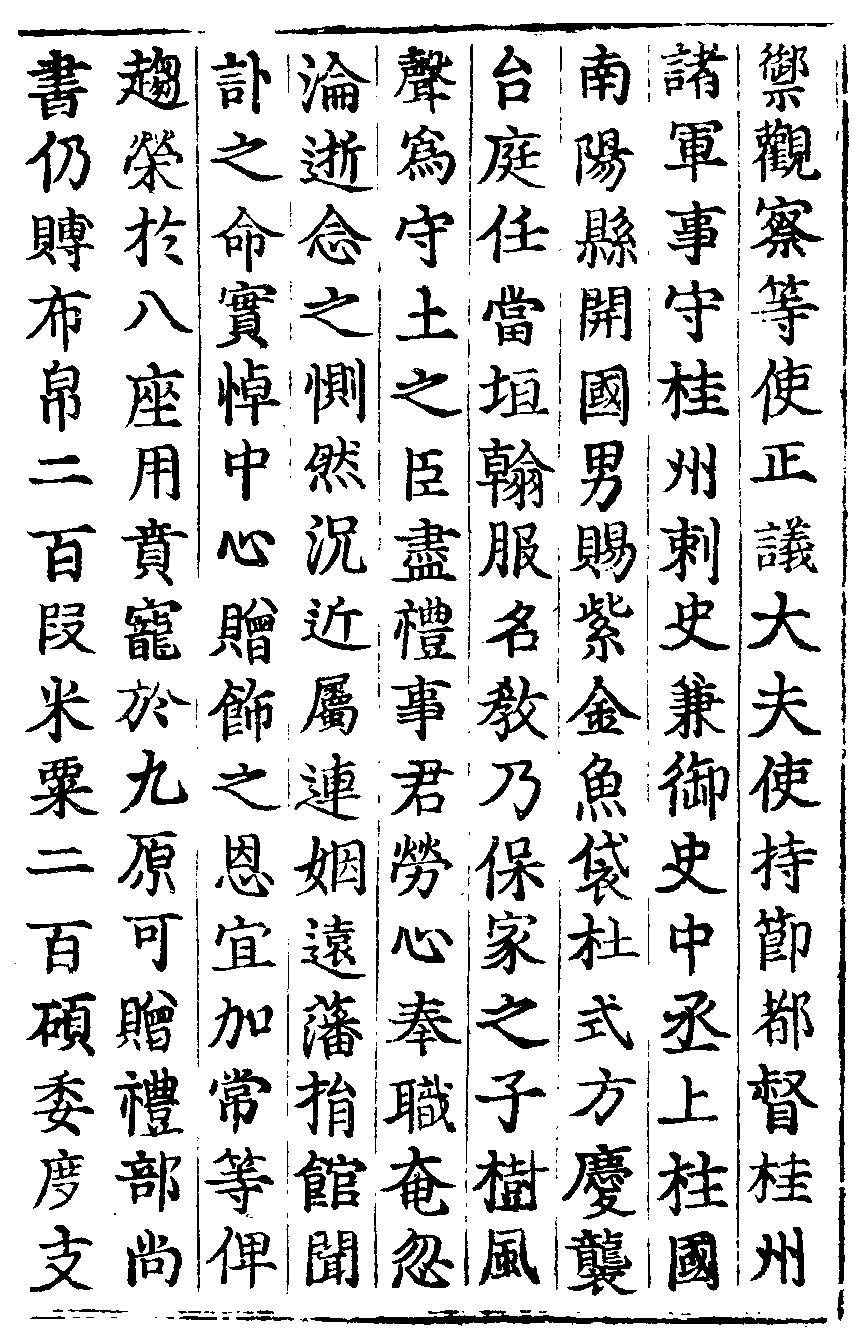 禦觀察等使正議大夫使持節都督桂州
諸軍事守桂州刺史兼御史中丞上柱國
南陽縣開國男賜紫金魚袋杜式方慶襲
台庭任當垣翰服名教乃保家之子樹風
聲爲守土之臣盡禮事君勞心奉職奄忽
淪逝念之惻然況近屬連姻遠藩捐館聞
訃之命實悼中心贈飾之恩宜加常等俾
趨榮於八座用賁寵於九原可贈禮部尚
書仍賻布帛二百段米粟二百碩委度支